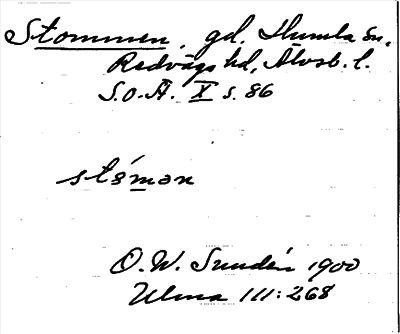 Stommen, gd, Humla sn,
Redvägs hd, Älvsb. l.
S.O.Ä. X s. 86
ståmən
O. W. Sundén 1900
Ulma 111:268